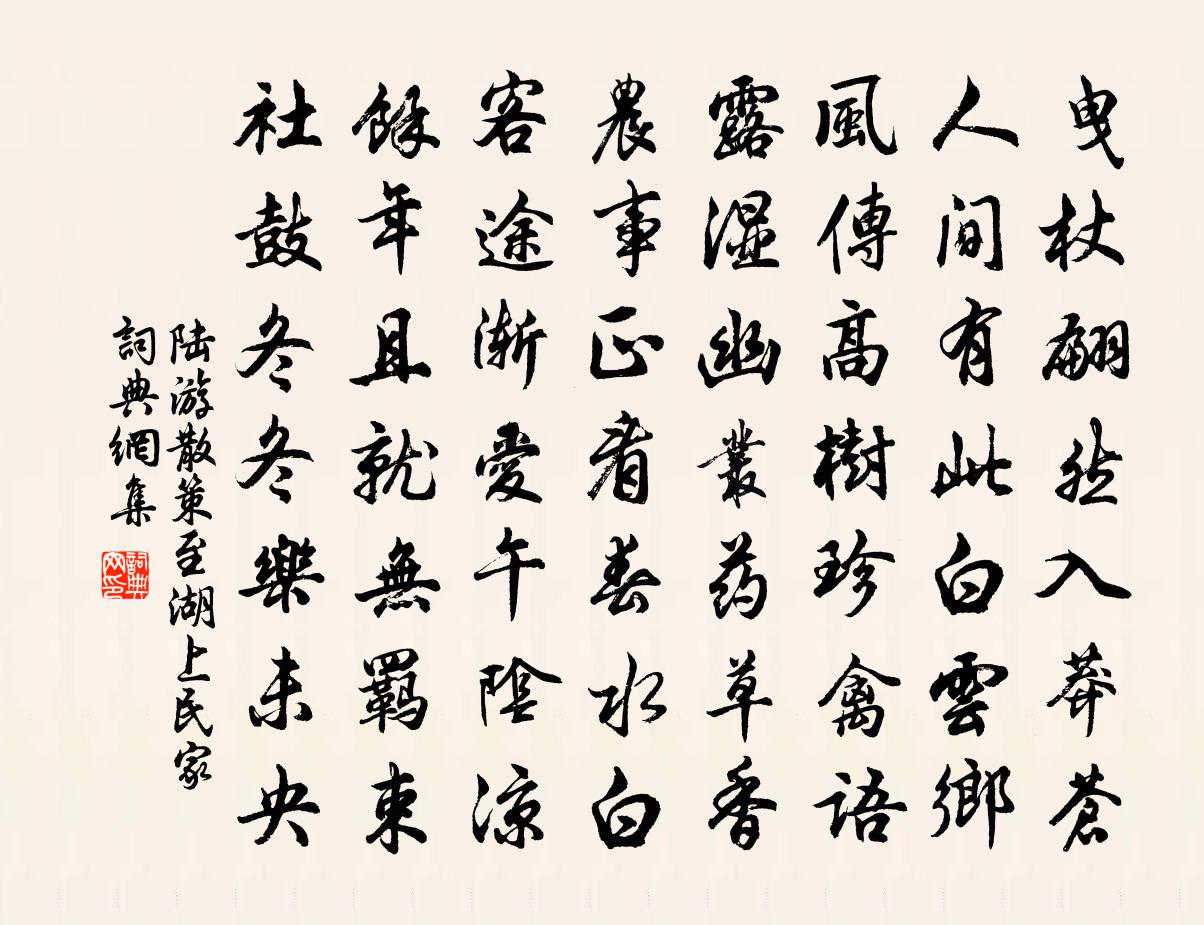 曳杖翩然入莽蒼
人間有此白雲鄉
風傳高樹珍禽語
露濕幽叢药草香
農事正看春水白
客途漸愛午陰涼
餘年且就無羈束
社鼓冬冬樂未央
陆游散策至湖上民家
詞典網集
詞典网印